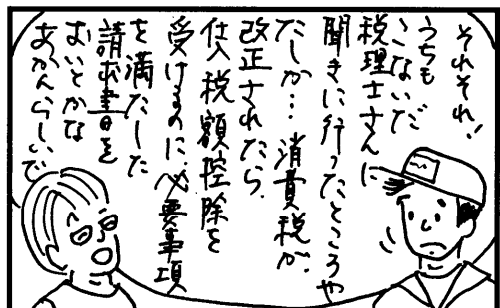 それそれ!
うちも
こないだ
税理士さんに
聞きに行ったところや
たしか…消費税が
改正されたら、
仕入税額控除を
受けるのに、必要事項
を満たした
請求書を
おいとかな
あかんらしいで